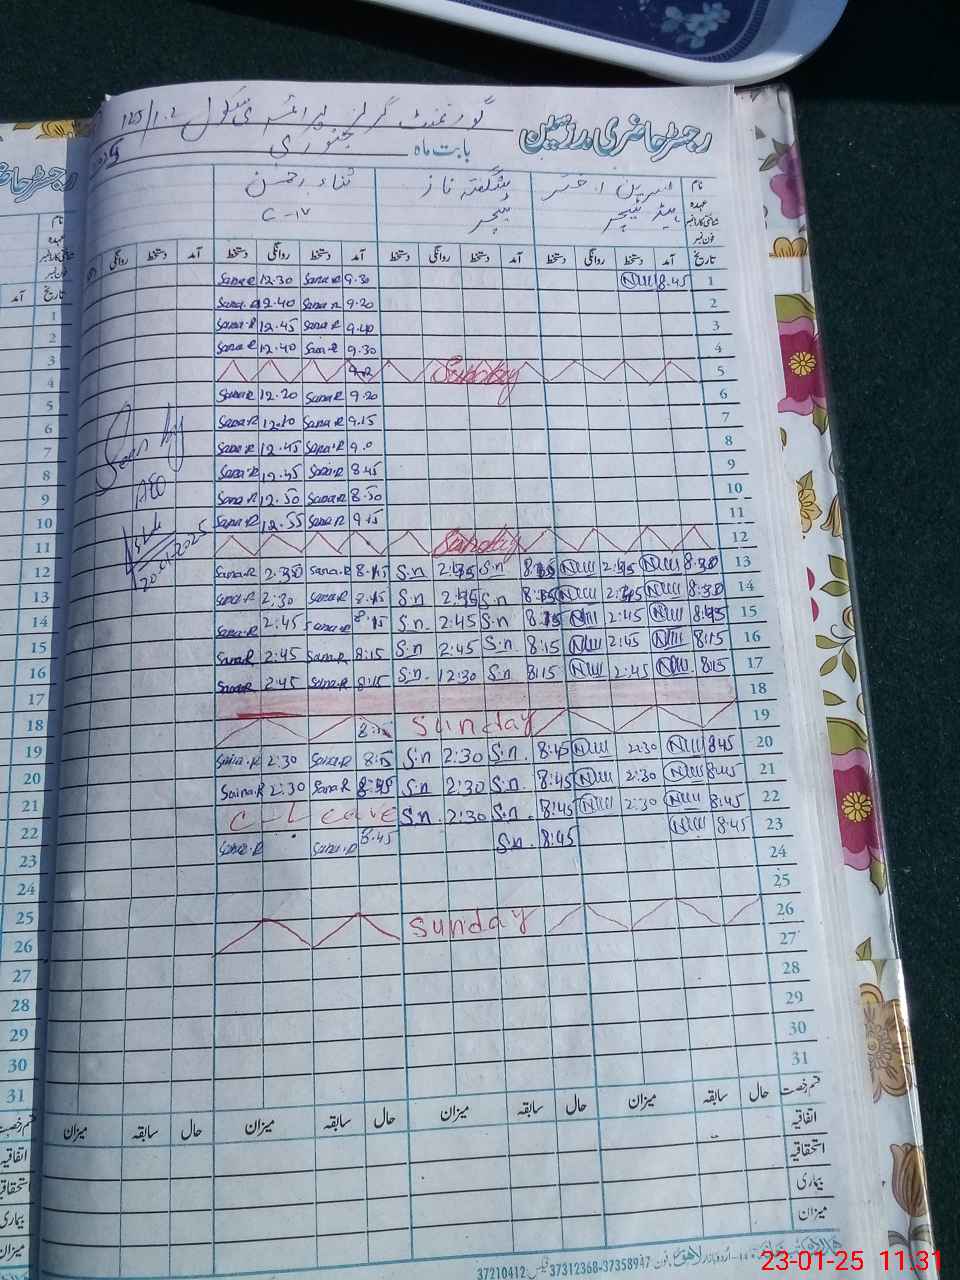 گورنمنٹ گرلز پرائمری سکول 125/1.2
رجسٹر حاضری مدرسین
بابت ماہ جنوری
نام نسرین اختر شگفتہ ناز ثناء رحمٰن
عہدہ ہیڈ ٹیچر ٹیچر C-IV
فون نمبر
تاریخ آمد دستخط روانگی دستخط آمد دستخط روانگی دستخط آمد دستخط روانگی دستخط آمد دستخط روانگی
1 8.45 9.30 Sana R 12.30 Sana R
2 9.20 Sana R 12.40 Sana R
3 9.40 Sana R 12.45 Sana R
4 9.30 Sana R 12.40 Sana R
5 Sunday
6 9.20 Sana R 12.20 Sana R
7 9.15 Sana R 12.10 Sana R
8 9.0 Sana R 12.45 Sana R
9 8.45 Sana R 12.45 Sana R
10 8.50 Sana R 12.50 Sana R
11 9.15 Sana R 12.55 Sana R
12 Sunday
13 8:30 S.n S.n 8:15 Sana.R 2:30 Sana.R
14 8:30 S.n S.n 8:15 Sana.R 2:30 Sana.R
15 2:45 S.n 2:45 S.n 8:15 Sana.R 2:45 Sana.R
16 8:15 2:45 8:15 S.n 2:45 S.n 8:15 Sana.R 2:45 Sana.R
17 8:15 2:45 8:15 S.n 12:30 S.n 8:15 Sana.R 2:45 Sana.R
18
19 Sunday
20 8:45 2:30 8:45 S.n 2:30 S.n 8:15 Sana.R 2:30 Sana.R
21 8:45 2:30 8:45 S.n 2:30 S.n Sana.R 2:30 Sana.R
22 8:45 2:30 8:45 S.n 2:30 S.n C-Leave
23 8:45 8:45 S.n 8:45 Sana.R Sana.R
24
25
26 Sunday
27
28
29
30
31
Seen by
AEO
20-01-2025
قسم رخصت حال سابقہ میزان حال سابقہ میزان حال سابقہ میزان حال سابقہ میزان
اتفاقیہ
استحقاقیہ
بیماری
میزان
اردو بازار لاہور فون 37358947-37312368 فیکس 37210412
رجسٹر حا
نام
عہدہ
فون نمبر
تاریخ آمد
1
2
3
4
5
6
7
8
9
10
11
12
13
14
15
16
17
18
19
20
21
22
23
24
25
26
27
28
29
30
31
قسم رخصت
اتفاقیہ
استحقاقیہ
بیماری
میزان
23-01-25 11:31